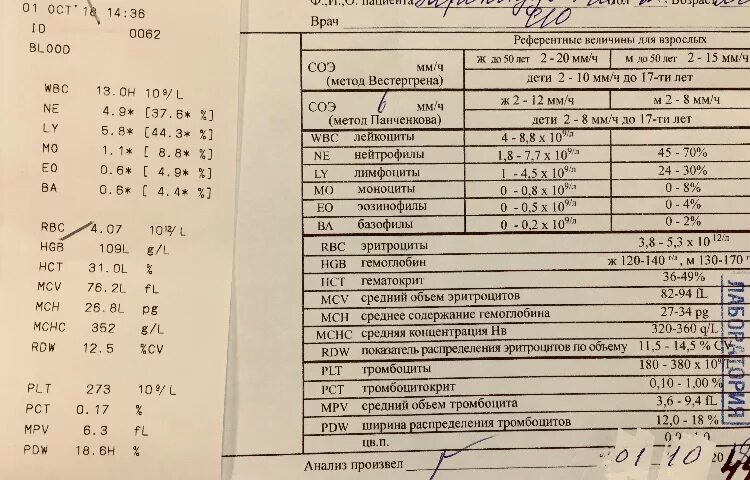 01 OCT 18 14:36
ID 0062
BLOOD
WBC 13.0H 10⁹/L
NE 4.9* [37.6* %]
LY 5.8* [44.3* %]
MO 1.1* [ 8.8* %]
EO 0.6* [ 4.9* %]
BA 0.6* [ 4.4* %]
RBC 4.07 10¹²/L
HGB 109L g/L
HCT 31.0L %
MCV 76.2L fL
MCH 26.8L pg
MCHC 352 g/L
RDW 12.5 %CV
PLT 273 10⁹/L
PCT 0.17 %
MPV 6.3 fL
PDW 18.6H %
Ф.,И.,О. пациента Возраст
Врач
Референтные величины для взрослых
СОЭ мм/ч ж до 50 лет 2 - 20 мм/ч м до 50 лет 2 - 15 мм/ч
(метод Вестергрена) дети 2 - 10 мм/ч до 17-ти лет
СОЭ 6 мм/ч ж 2 - 12 мм/ч м 2 - 8 мм/ч
(метод Панченкова) дети 2 - 8 мм/ч до 17-ти лет
WBC лейкоциты 4 - 8,8 х 10⁹/л
NE нейтрофилы 1,8 - 7,7 х 10⁹/л 45 - 70%
LY лимфоциты 1 - 4,5 х 10⁹/л 24 - 30%
MO моноциты 0 - 0,8 х 10⁹/л 0 - 8%
EO эозинофилы 0 - 0,5 х 10⁹/л 0 - 4%
BA базофилы 0 - 0,2 х 10⁹/л 0 - 2%
RBC эритроциты 3,8 - 5,3 х 10¹²/л
HGB гемоглобин ж 120-140 г/л, м 130-170 г/
HCT гематокрит 36-49%
MCV средний объем эритроцитов 82-94 fL
MCH среднее содержание гемоглобина 27-34 pg
MCHC средняя концентрация Нв 320-360 q/L
RDW показатель распределения эритроцитов по объему 11,5 - 14,5 % CV
PLT тромбоциты 180 - 380 х 10⁹
PCT тромбоцитокрит 0,10 - 1,00 %
MPV средний объем тромбоцита 3,6 - 9,4 fL
PDW ширина распределения тромбоцитов 12,0 - 18 %
цв.п.
Анализ произвел 01 10 20
ЛАБОРАТОРИЯ